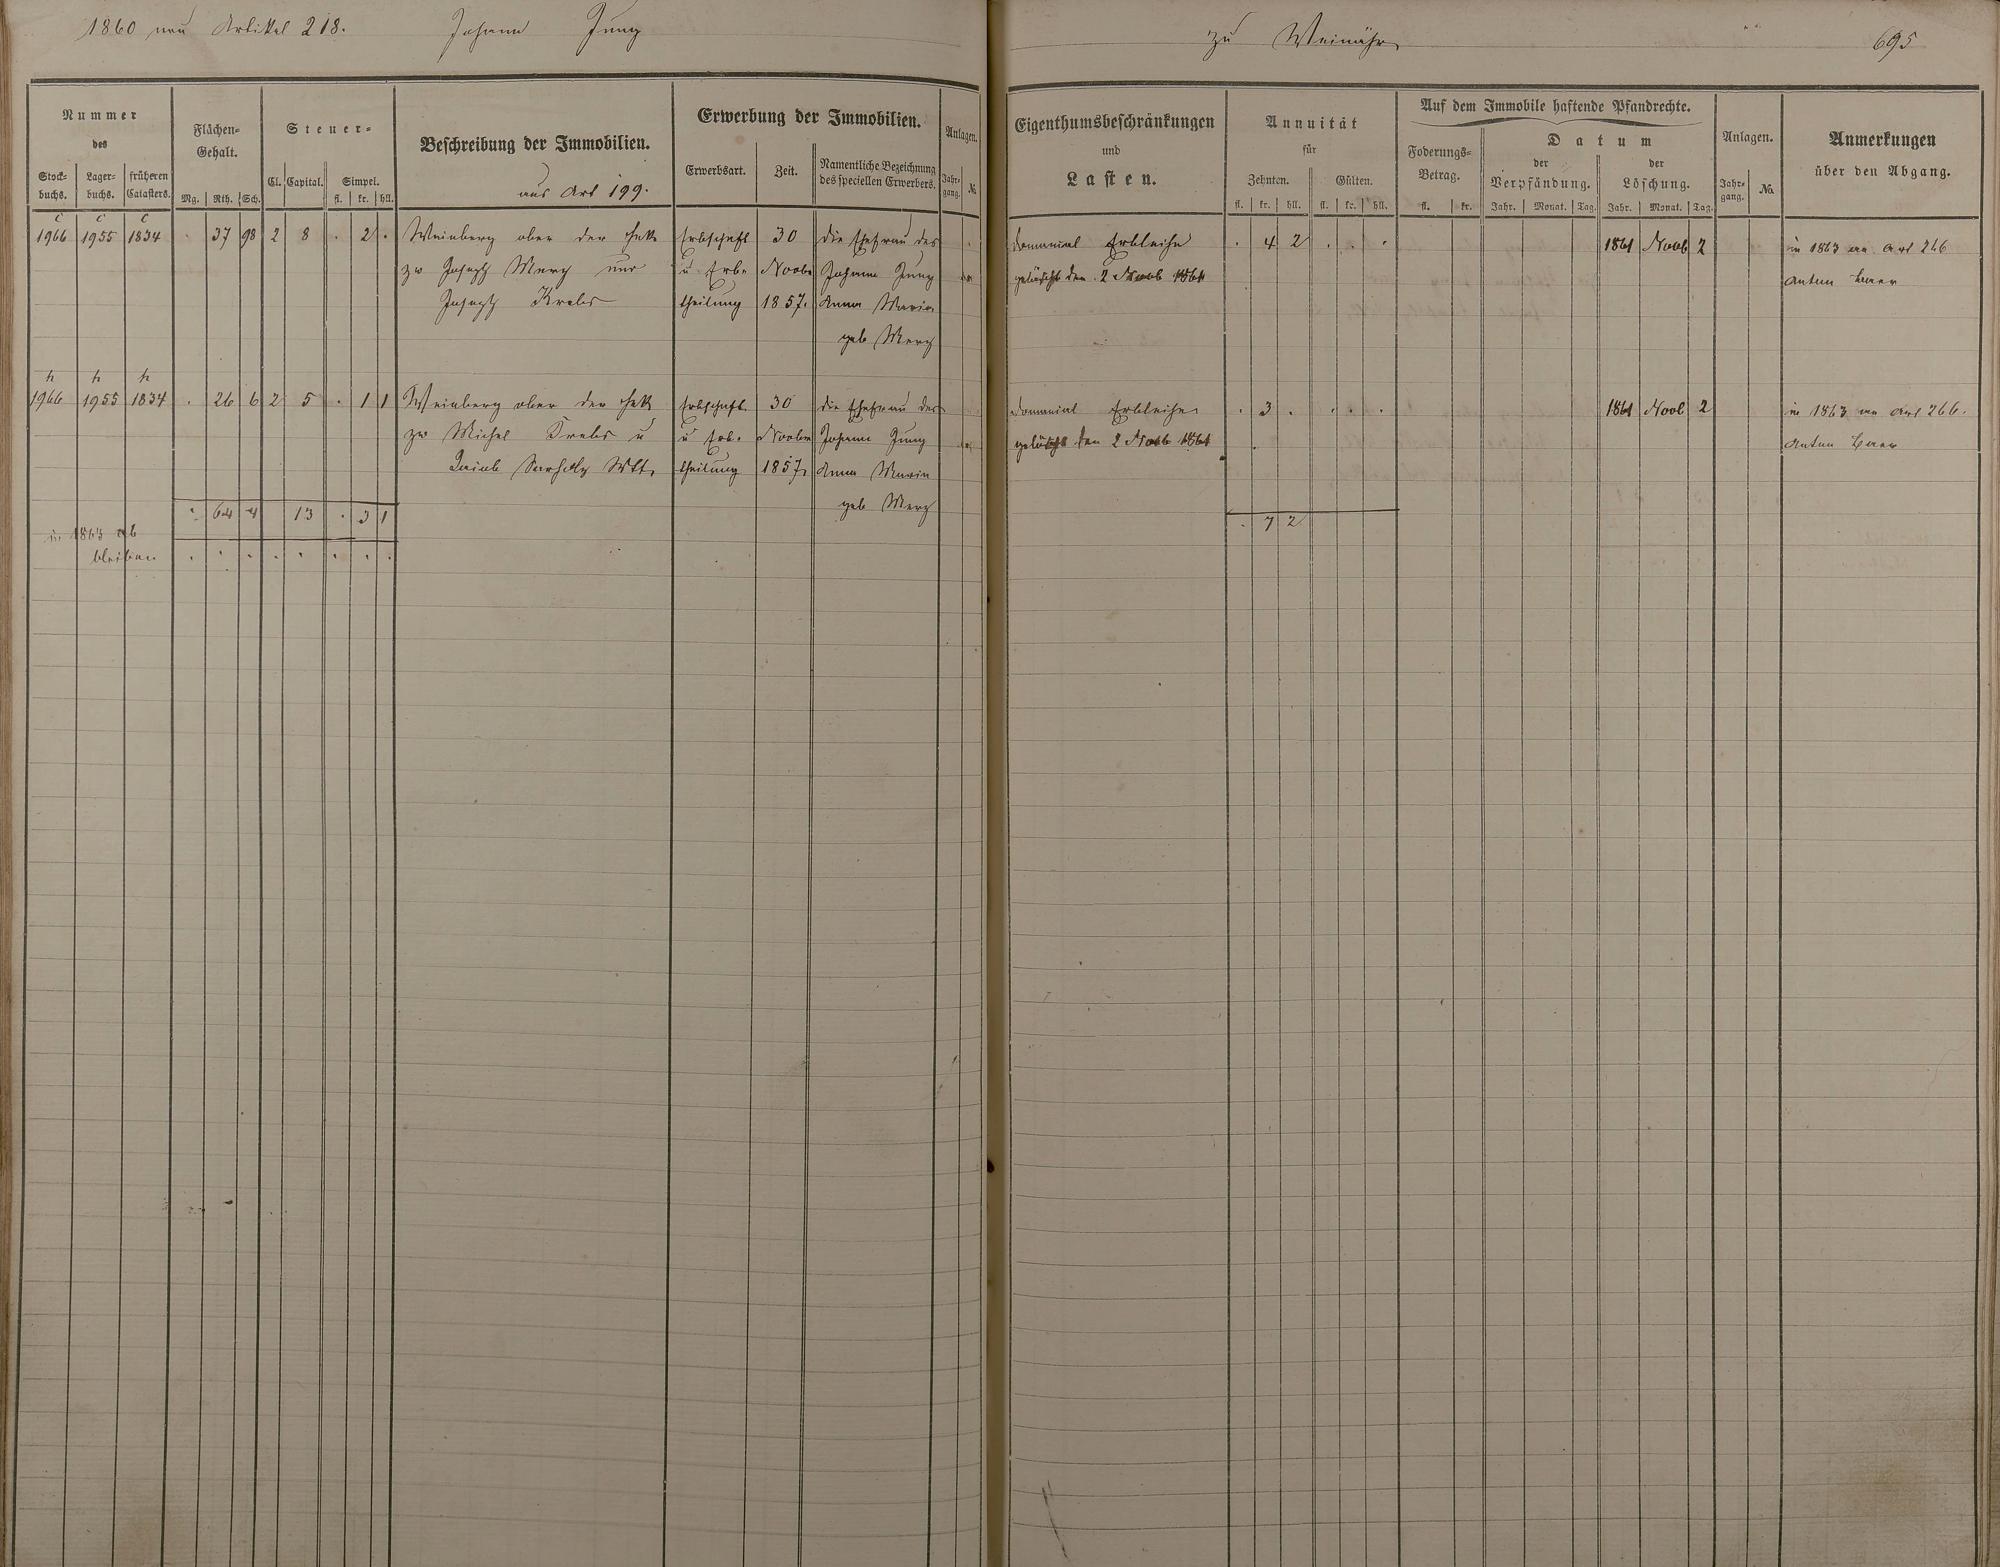 1860 neu Artikel 218. Johann Jung zu Weinähr 695
Nummer
des
Stock-buchs. Lager-buchs. früheren Catasters.
Flächen-Gehalt.
Mg. Rth. Sch.
Steuer-
Cl. Capital. Simpel.
fl. kr. hll.
Beschreibung der Immobilien.
aus Art 199.
Erwerbung der Immobilien.
Erwerbsart. Zeit. Namentliche Bezeichnung des speciellen Erwerbers.
Anlagen.
Jahr-gang. №
Eigenthumsbeschränkungen
und
Lasten.
Annuität
für
Zehnten. Gülten.
fl. kr. hll. fl. kr. hll.
Auf dem Immobile haftende Pfandrechte.
Foderungs-Betrag.
fl. kr.
Datum
der Verpfändung. der Löschung.
Jahr. Monat. Tag. Jahr. Monat. Tag.
Anlagen.
Jahr-gang. No.
Anmerkungen
über den Abgang.
c c c
1966 1955 1834 . 37 98 2 8 . 2 . Weinberg ober der Erbschaft 30 die Ehefrau des Domanial Erbleihe . 4 2 . . . 1861 Novb 2 in 1863 an Art 266
zw Joseph Merz und u Erb- Novbr Johann Jung gelöscht den 2 Novb 1861 Anton Baer
Joseph Krebs theilung 1857. Anna Maria
geb Merz
h h h
1966 1955 1834 . 26 6 2 5 . 1 1 Weinberg ober der Erbschaft 30 die Ehefrau des Domanial Erbleihe . 3 . . . . 1861 Novb 2 in 1863 an Art 266.
zw Michel Krebs u u Erb- Novbr Johann Jung gelöscht den 2 Novb 1861 Anton Baer
theilung 1857. Anna Maria
geb Merz
. 64 4 13 . 3 1 . 7 2
in 1863 ab
bleiben . . . . . . . .